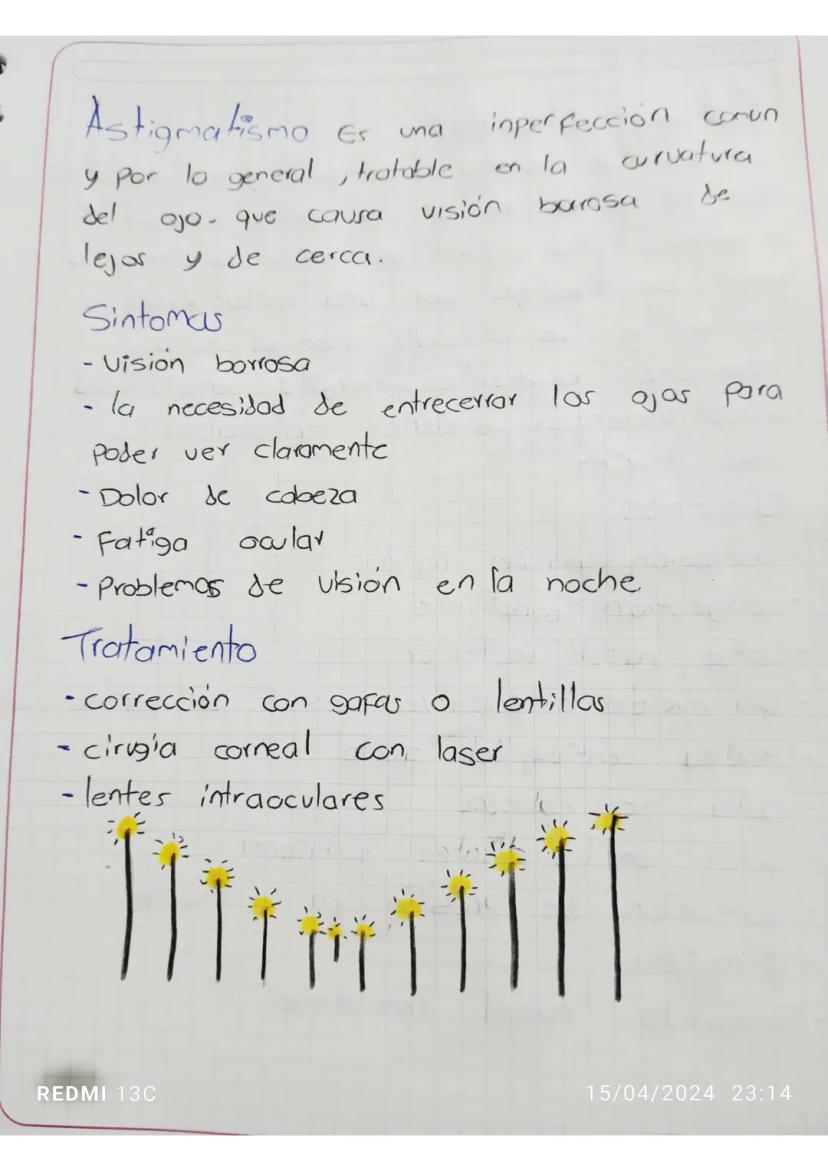 Astigmatismo Es una inperfección comun
y por lo general, tratable en la curvatura
del ojo. que causa visión borrosa de
lejos y de cerca.
Sintomas
- Visión borrosa
- la necesidad de entrecerrar los ojos para
poder ver claramente
- Dolor de cabeza
- Fatiga ocular
- Problemas de visión en la noche.
Tratamiento
- corrección con gafas o lentillas
- cirugía corneal con laser
- lentes intraoculares
REDMI 13C
15/04/2024 23:14